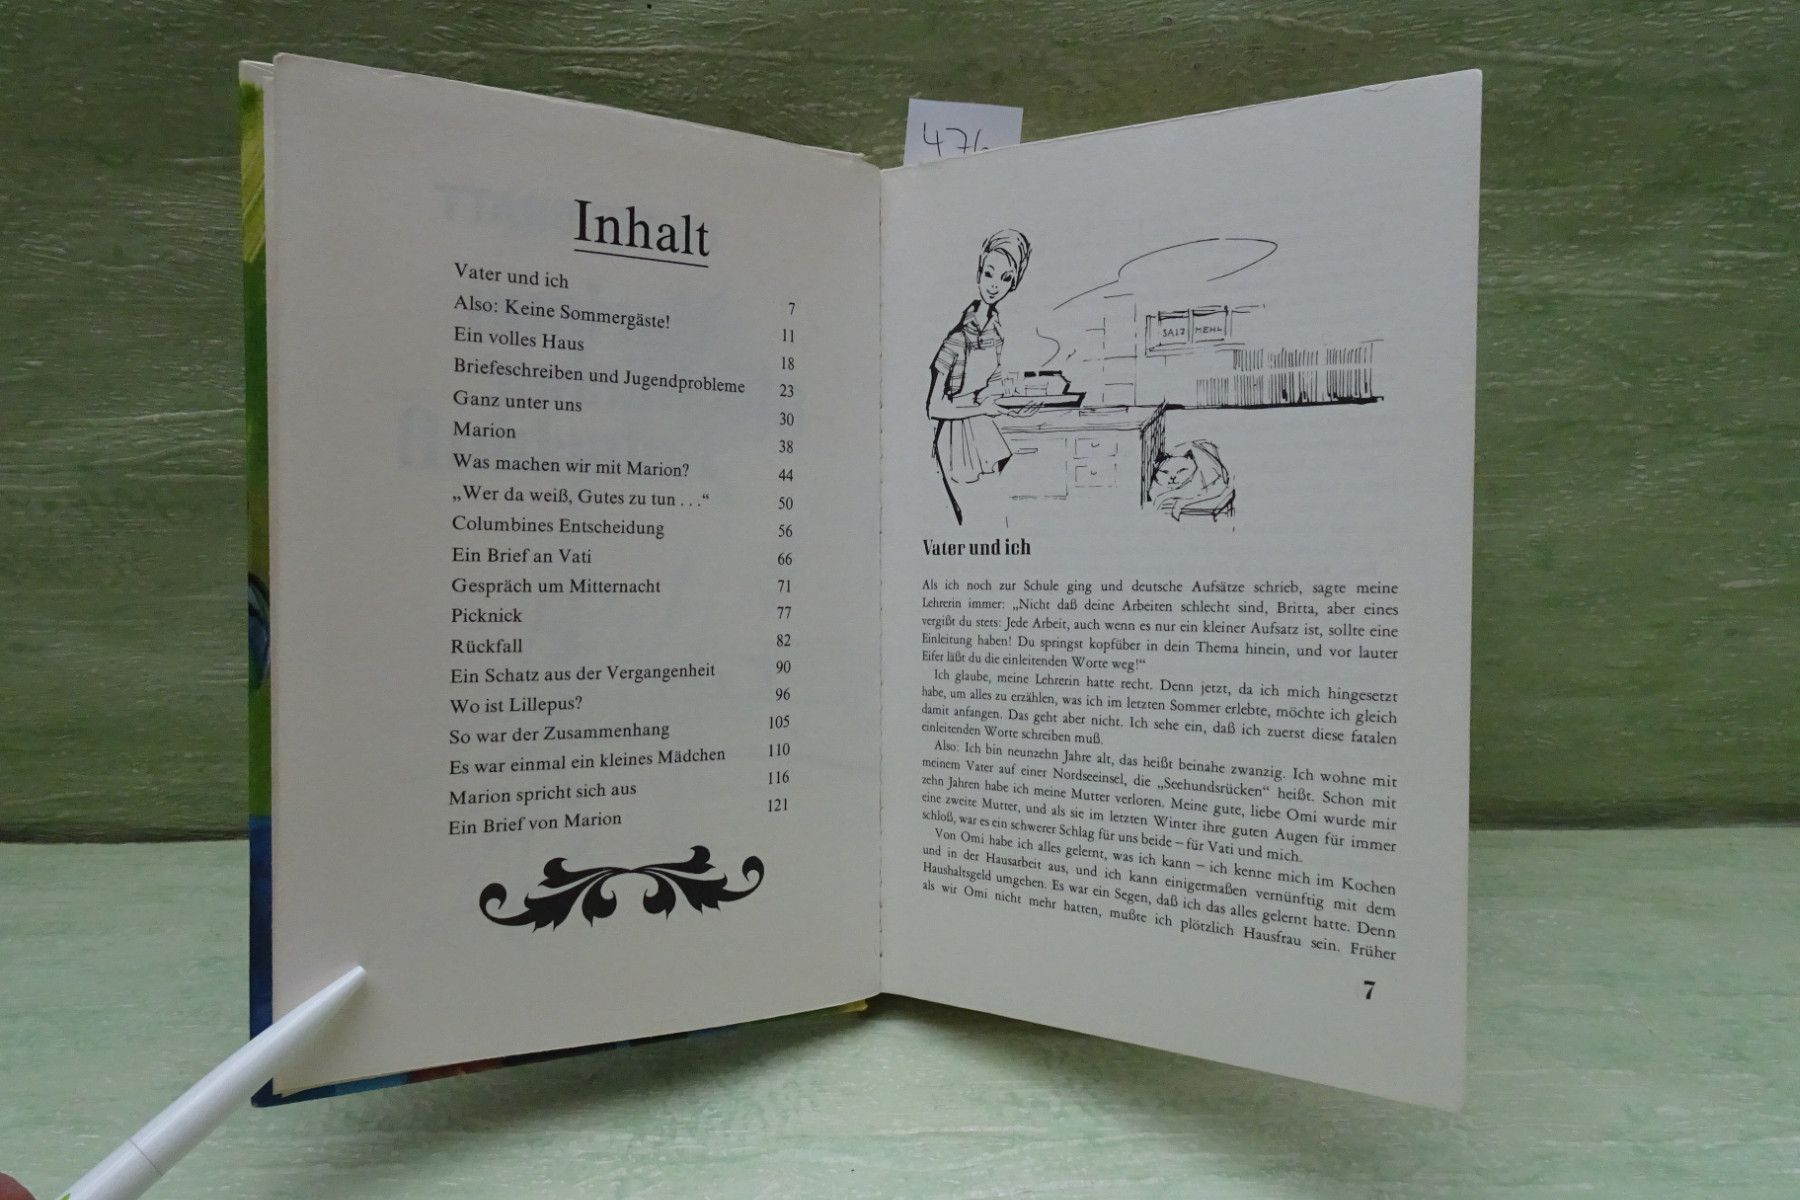 476
Inhalt
Vater und ich 7
Also: Keine Sommergäste! 11
Ein volles Haus 18
Briefeschreiben und Jugendprobleme 23
Ganz unter uns 30
Marion 38
Was machen wir mit Marion? 44
„Wer da weiß, Gutes zu tun . . .“ 50
Columbines Entscheidung 56
Ein Brief an Vati 66
Gespräch um Mitternacht 71
Picknick 77
Rückfall 82
Ein Schatz aus der Vergangenheit 90
Wo ist Lillepus? 96
So war der Zusammenhang 105
Es war einmal ein kleines Mädchen 110
Marion spricht sich aus 116
Ein Brief von Marion 121
SALZ MEHL
Vater und ich
Als ich noch zur Schule ging und deutsche Aufsätze schrieb, sagte meine
Lehrerin immer: „Nicht daß deine Arbeiten schlecht sind, Britta, aber eines
vergißt du stets: Jede Arbeit, auch wenn es nur ein kleiner Aufsatz ist, sollte eine
Einleitung haben! Du springst kopfüber in dein Thema hinein, und vor lauter
Eifer läßt du die einleitenden Worte weg!“
Ich glaube, meine Lehrerin hatte recht. Denn jetzt, da ich mich hingesetzt
habe, um alles zu erzählen, was ich im letzten Sommer erlebte, möchte ich gleich
damit anfangen. Das geht aber nicht. Ich sehe ein, daß ich zuerst diese fatalen
einleitenden Worte schreiben muß.
Also: Ich bin neunzehn Jahre alt, das heißt beinahe zwanzig. Ich wohne mit
meinem Vater auf einer Nordseeinsel, die „Seehundsrücken“ heißt. Schon mit
zehn Jahren habe ich meine Mutter verloren. Meine gute, liebe Omi wurde mir
eine zweite Mutter, und als sie im letzten Winter ihre guten Augen für immer
schloß, war es ein schwerer Schlag für uns beide – für Vati und mich.
Von Omi habe ich alles gelernt, was ich kann – ich kenne mich im Kochen
und in der Hausarbeit aus, und ich kann einigermaßen vernünftig mit dem
Haushaltsgeld umgehen. Es war ein Segen, daß ich das alles gelernt hatte. Denn
als wir Omi nicht mehr hatten, mußte ich plötzlich Hausfrau sein. Früher
7